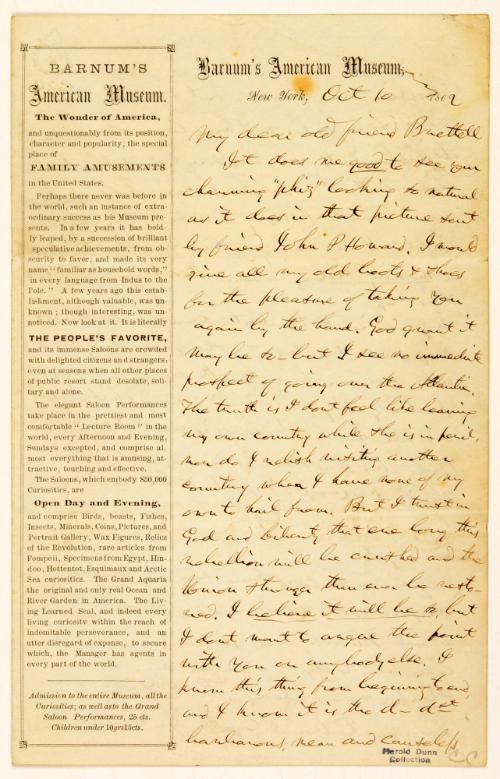 BARNUM'S
American Museum.
The Wonder of America,
and unquestionably from its position,
character and popularity, the special
place of
FAMILY AMUSEMENTS
in the United States.
Perhaps there never was before in
the world, such an instance of extra-
ordinary success as his Museum pre-
sents. In a few years it has bold-
ly leaped, by a succession of brilliant
speculative achievements, from ob-
scurity to favor, and made its very
name "familiar as household words,"
in every language from Indus to the
Pole." A few years ago this estab-
lishment, although valuable, was un-
known; though interesting, was un-
noticed. Now look at it. It is literally
THE PEOPLE'S FAVORITE,
and its immense Saloons are crowded
with delighted citizens and strangers,
even at seasons when all other places
of public resort stand desolate, soli-
tary and alone.
The elegant Saloon Performances
take place in the prettiest and most
comfortable "Lecture Room" in the
world, every Afternoon and Evening,
Sundays excepted, and comprise al-
most everything that is amusing, at-
tractive, touching and effective.
The Saloons, which embody 850,000
Curiosities, are
Open Day and Evening,
and comprise Birds, beasts, Fishes,
Insects, Minerals, Coins, Pictures, and
Portrait Gallery, Wax Figures, Relics
of the Revolution, rare articles from
Pompeii, Specimens from Egypt, Hin-
doo, Hottentot, Esquimaux and Arctic
Sea curiosities. The Grand Aquaria
the original and only real Ocean and
River Garden in America. The Liv-
ing Learned Seal, and indeed every
living curiosity within the reach of
indomitable perseverance, and an
utter disregard of expense, to secure
which, the Manager has agents in
every part of the world.
Admission to the entire Museum, all the
Curiosities; as well as to the Grand
Saloon Performances, 25 cts.
Children under 10 yrs 15 cts.
Barnum's American Museum,
New York, Oct 10 1862
My dear old friend Buettell
It does me good to see your
charming "phiz" looking so natural
as it does in that picture sent
by friend John P Howard. I would
give all my old boots & shoes
for the pleasure of taking you
again by the hand. God grant it
may be so – but I see no immediate
prospect of going over the Atlantic.
The truth is I dont feel like leaving
my own country while she is in peril,
nor do I relish visiting another
country when I have none of my
own to hail from. But I trust in
God and Liberty that ere long this
rebellion will be crushed and the
Union stronger than ever be resto-
red. I believe it will be so, but
I dont want to argue the point
with you or anybody else. I
know this thing from beginning to end,
and I know it is the d–dst
barbarous, mean and causeless
Harold Dunn
Collection